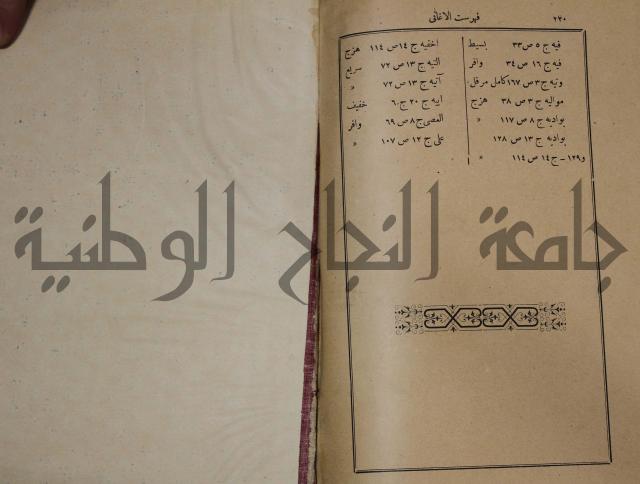 ٢٢٠
فهرست الاغانى
فيه ج ٥ ص ٣٣ بسيط
فيه ج ١٦ ص ٣٤ وافر
وتيه ج ٣ ص ١٦٧ كامل مرفل
مواليه ج ٣ ص ٣٨ هزج
بواديه ج ٨ ص ١١٧ »
بواديه ج ١٣ ص ١٢٨
و ١٢٩ - ج ١٤ ص ١١٤ »
اخفيه ج ١٤ ص ١١٤ هزج
التيه ج ١٣ ص ٧٢ سريع
آتيه ج ١٣ ص ٧٢ »
ابيه ج ٢٠ ج ٦ خفيف
العصى ج ٨ ص ٦٩ وافر
على ج ١٢ ص ١٠٧ »
جامعة النجاح الوطنية